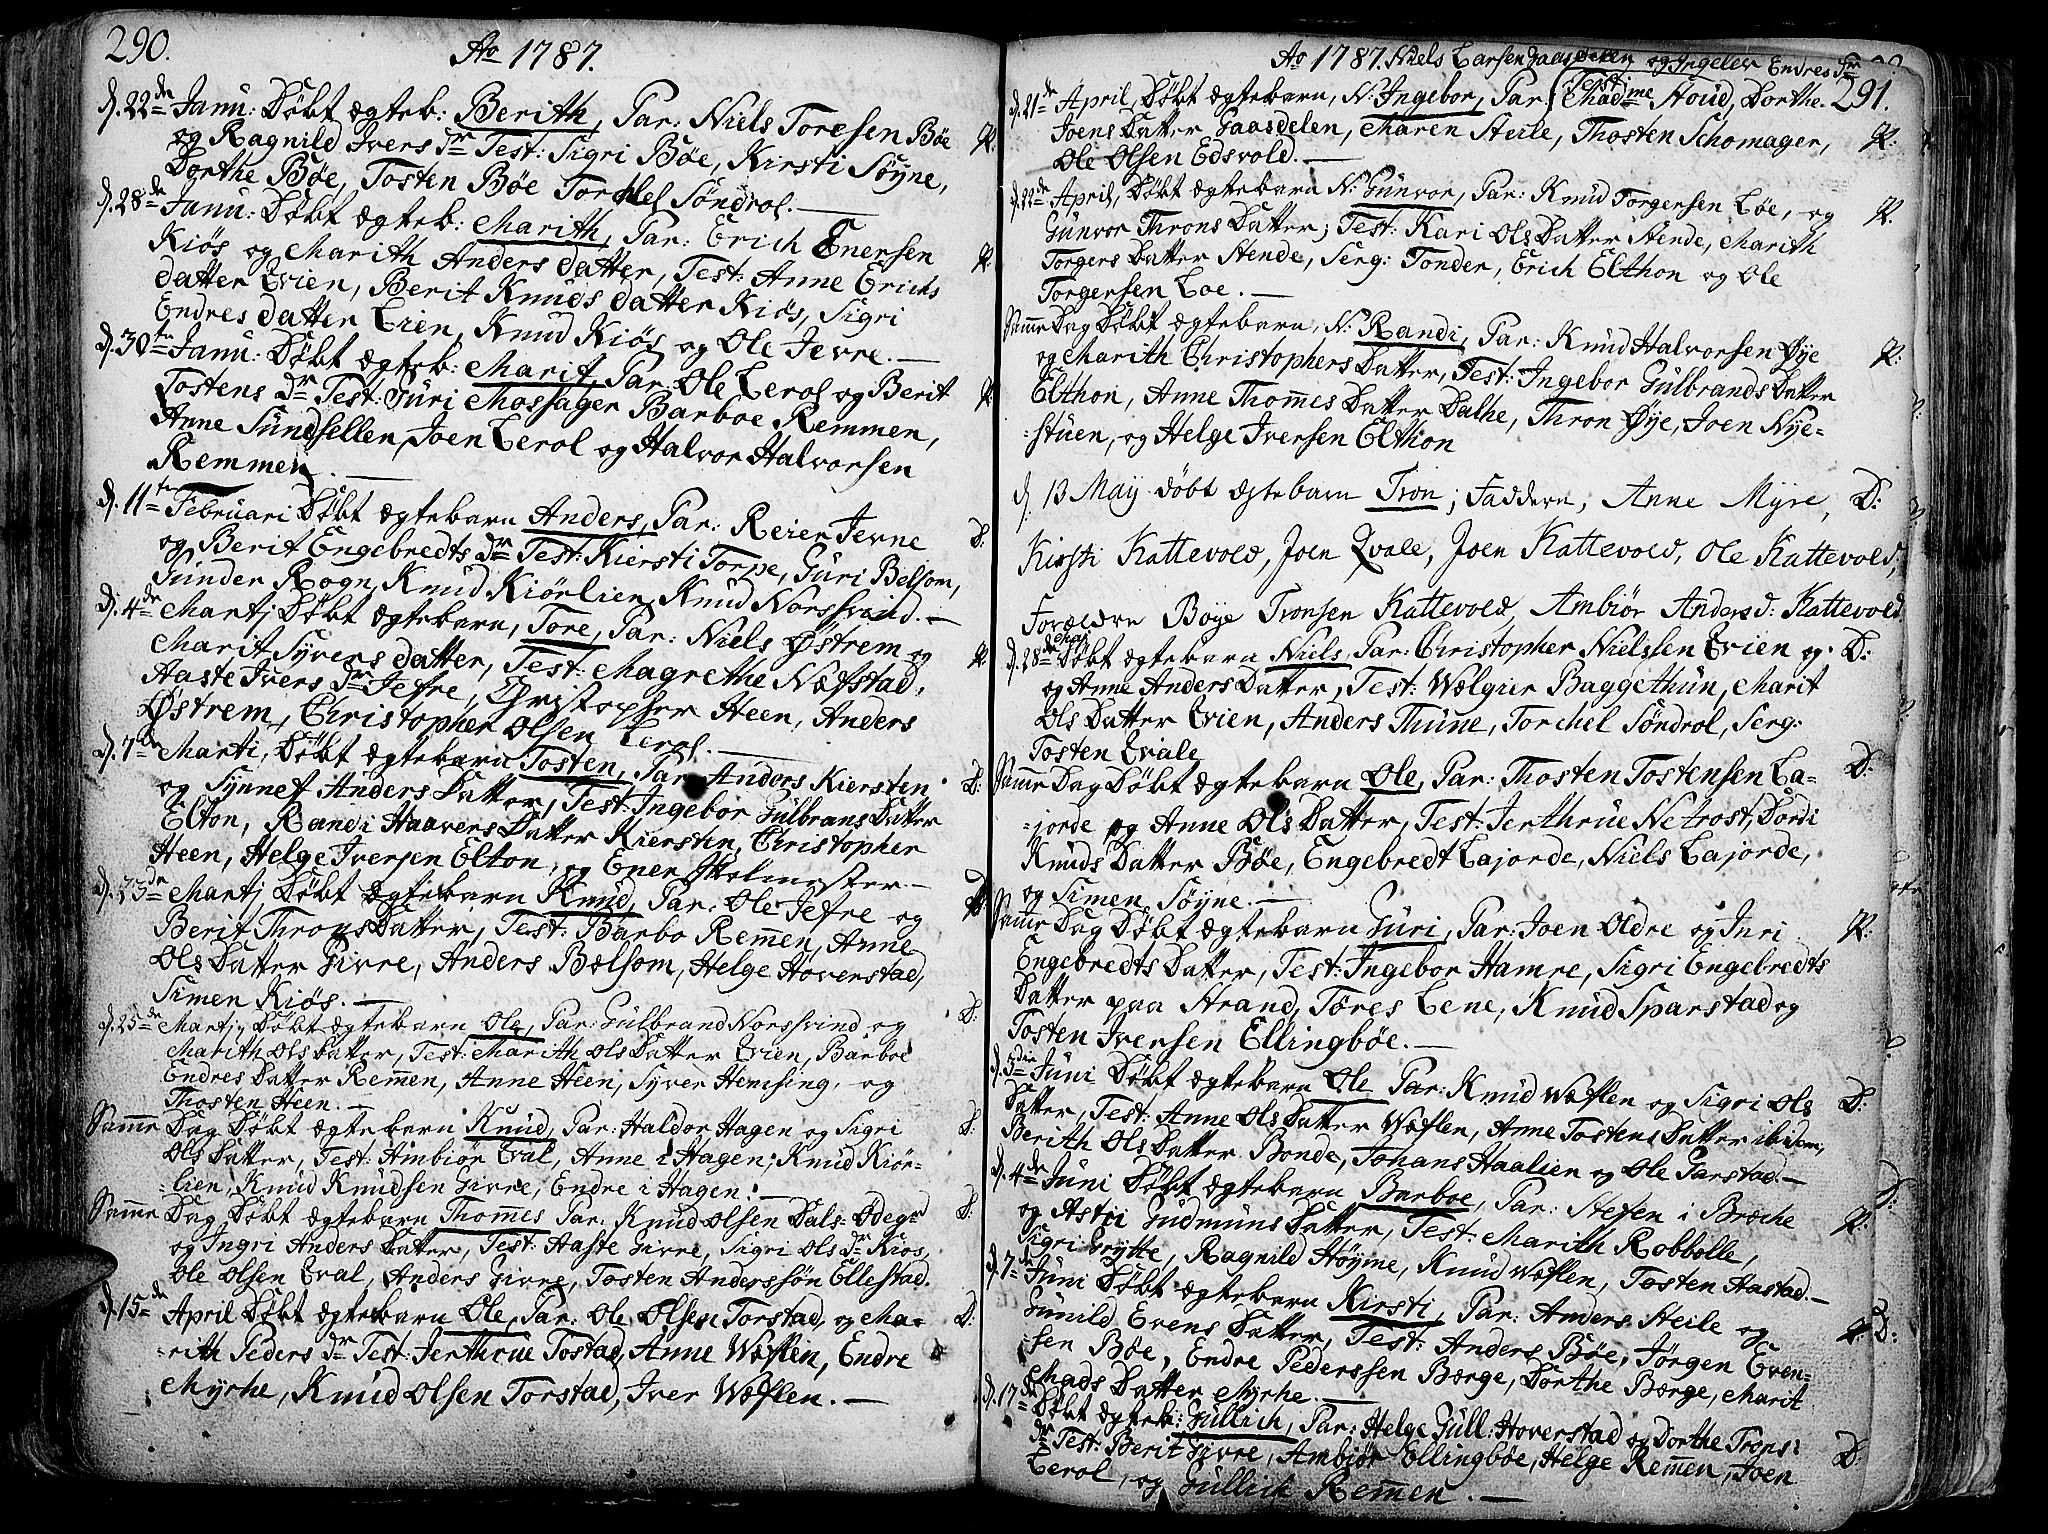 290.
Ao 1787.
d. 22de Janu: Døbt ægteb: Berith, Par: Niels Toresen Bøe
og Ragnild Ivers dr Test: Sigri Bøe, Kirsti Søyne,
Dorthe Bøe, Tosten Bøe Torchel Søndrol.
d. 28de Janu: Døbt ægteb: Marith, Par: Erich Enersen
Kiøs og Marith Anders datter, Test: Anne Erichs
datter Qvien, Berit Knuds datter Kiøs, Sigri
Endres datter Qvien, Knud Kiøs og Ole Jevre.
d. 30te Janu: Døbt ægteb: Marit, Par: Ole Lerol og Berit
Tostens dr Test: Guri Mossager Barboe Remmen,
Anne Sundsellen, Joen Lerol og Halvor Halvorsen
Remmen.
d. 11te Februari Døbt ægtebarn Anders, Par: Reier Jevne
og Berit Engebredts dr Test: Kiersti Torpe, Guri Belsom,
Gunder Rogn, Knud Kiørlien, Knud Norssvind.
d. 4de Martj Døbt ægtebarn, Tore, Par: Niels Østrem og
Marit Syvers datter, Test: Magrethe Næfstad,
Aaste Ivers dr Jefre, Christopher Heen, Anders
Østrem, Christopher Olsen Lerol.
d. 7de Marti, Døbt ægtebarn Tosten, Par: Anders Kiersten
og Synnef Anders Datter, Test: Ingebor Gulbrans Datter
Elton, Randi Haavers Datter Kiersten, Christopher
Heen, Helge Iversen Elton, og Ener Skolmester.
d. 23de Martj Døbt ægtebarn Knud, Par: Ole Jefre og
Berit Throns Datter, Test: Barbo Remen, Anne
Ols Datter Givre, Anders Bælsom, Helge Hoverstad,
Simen Kiøs.
d. 25de Martj, Døbt ægtebarn Ole, Par: Gulbrand Norssvind og
Marith Ols Datter, Test: Marith Ols Datter Qvien, Barboe
Endres Datter Remen, Anne Heen, Syver Hemsing, og
Thosten Heen.
Samme Dag Døbt ægtebarn Knud, Par: Haldor Hagen og Sigri
Ols Datter, Test: Ambiør Qval, Anne i Hagen, Knud Kiør-
-lien, Knud Knudsen Givre, Endre i Hagen.
Samme Dag Døbt ægtebarn Thomes Par: Knud Olsen Dals-Ødegd
og Ingri Anders Datter, Test: Aaste Givre, Sigri Ols dr Kiøs,
Ole Olsen Qval, Anders Givre, Tosten Anderssøn Ellestad.
d. 15de April Døbt ægtebarn Ole, Par: Ole Olsen Torstad, og Ma-
-rith Peders dr Test: Jerthrue Tostad, Anne Wæflen, Endre
Myrhe, Knud Olsen Torstad, Iver Wæflen.
Ao 1787. Niels Larsen Gaasdelen og Ingelev Endres dr
291.
d. 21de April, Døbt ægtebarn, N: Ingebor, Par: Test: Madme Stoud, Dorthe
Joens Datter Gaasdelen, Maren Steile, Thosten Schomager,
Ole Olsen Edsvold.
d. 22de April, Døbt ægtebarn N: Gunvor, Par: Knud Torgersen Løe, og
Gunvor Throns Datter; Test: Kari Ols Datter Stende, Marith
Torgers Datter Stende, Serg: Tonder, Erich Elthon og Ole
Torgersen Loe.
Samme Dag Døbt ægtebarn, N: Randi, Par: Knud Halvorsen Øye
og Marith Christophers Datter, Test: Ingebor Gulbrands Datter
Elthon, Anne Thommes Datter Dalhe, Thron Øye, Joen Nye-
-stuen, og Helge Iversen Elthon
d. 13 May døbt ægtebarn Tron; Faddern, Anne Myre, D:
Kirsti Kattevold, Joen Qvale, Joen Kattevold, Ole Kattevold,
Forældre Boye Tronsen Kattevold, Ambiør Andersd: Kattevold
d. 28de Maj Døbt ægtebarn Niels, Par: Christopher Nielssen Qvien og. D:
og Anne Anders Datter, Test: Wælgier Baggethun, Marit
Ols Datter Qvien, Anders Thune, Torchel Søndrol, Serg:
Tosten Qvale
Samme Dag Døbt ægtebarn Ole, Par: Thosten Tostensen La- D:
-jorde og Anne Ols Datter, Test: Jerthrue Netrost, Dordi
Knuds Datter Bøe, Engebredt Lajorde, Niels Lajorde,
og Simen Søyne.
Samme Dag Døbt ægtebarn Guri, Par: Joen Oldre og Juri
Engebredts Datter, Test: Ingebor Hamre, Sigri Engebredts
Datter paa Strand, Tøres Lene, Knud Sparstad og
Tosten Iversen Ellingbøe.
d. 3die Juni Døbt ægtebarn Ole Par: Knud Wæflen og Sigri Ols D:
Datter, Test: Anne Ols Datter Wæflen, Anne Tostens Datter ibidem,
Berith Ols Datter Bonde, Johans Haalien og Ole Parstad.
d. 4de Juni Døbt ægtebarn Barboe, Par: Stefen i Bræche
og Astri Gudmuns Datter, Test: Marith Robbølle,
Sigri Grytte, Ragnild Høyme, Knud Wæflen, Tosten Aastad.
d. 7de Juni Døbt ægtebarn Kirsti, Par: Anders Steile og D:
Gunild Evens Datter, Test: Anders Bøe, Jørgen Even-
-sen Bøe, Endre Pederssen Børge, Dorthe Børge, Marit
Mads Datter Myrhe.
d. 17de Døbt ægteb: Gullich, Par: Helge Gull: Hoverstad og Dorthe Trons:
dr Test: Berit Givre, Ambjør Ellingbøe, Helge Remen, Joen D:
Lerol, og Gullich Remen.